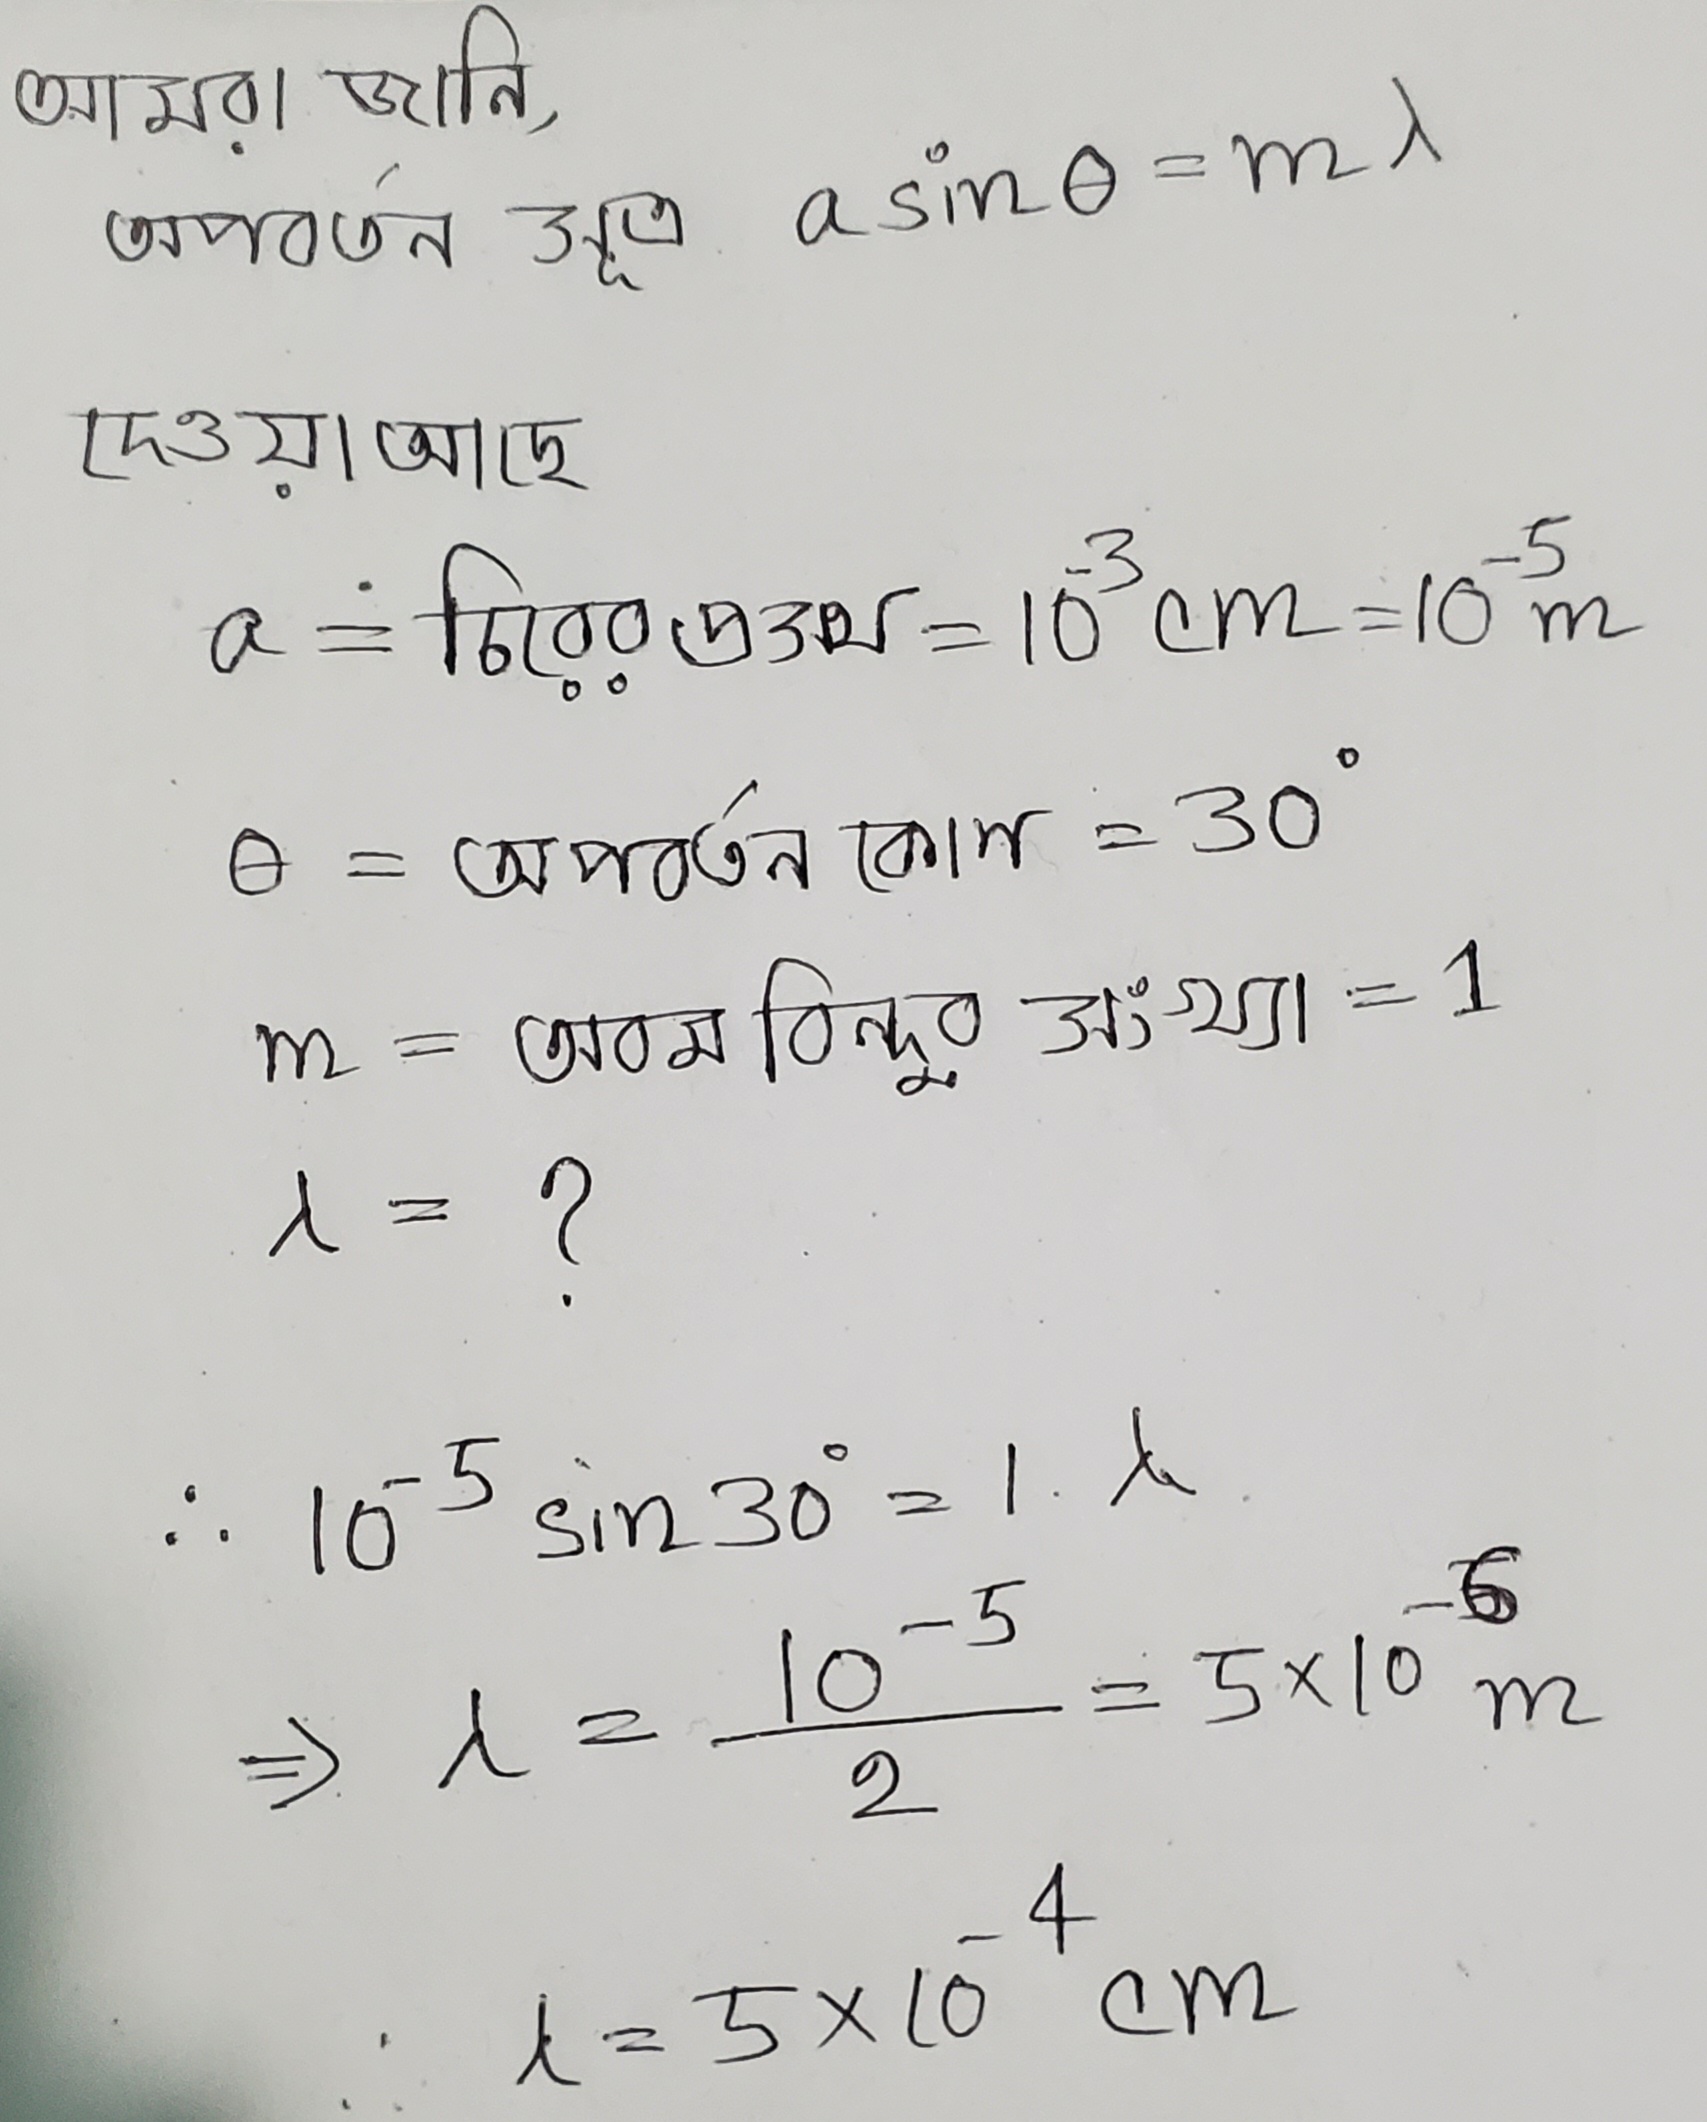 আমরা জানি,
অপবর্তন সূত্র a sin θ = mλ
দেওয়া আছে
a = চিরের প্রস্থ = 10⁻³ cm = 10⁻⁵ m
θ = অপবর্তন কোণ = 30°
m = অবম বিন্দুর সংখ্যা = 1
λ = ?
∴ 10⁻⁵ sin 30° = 1. λ
⇒ λ = 10⁻⁵/2 = 5×10⁻⁶ m
∴ λ = 5×10⁻⁴ cm